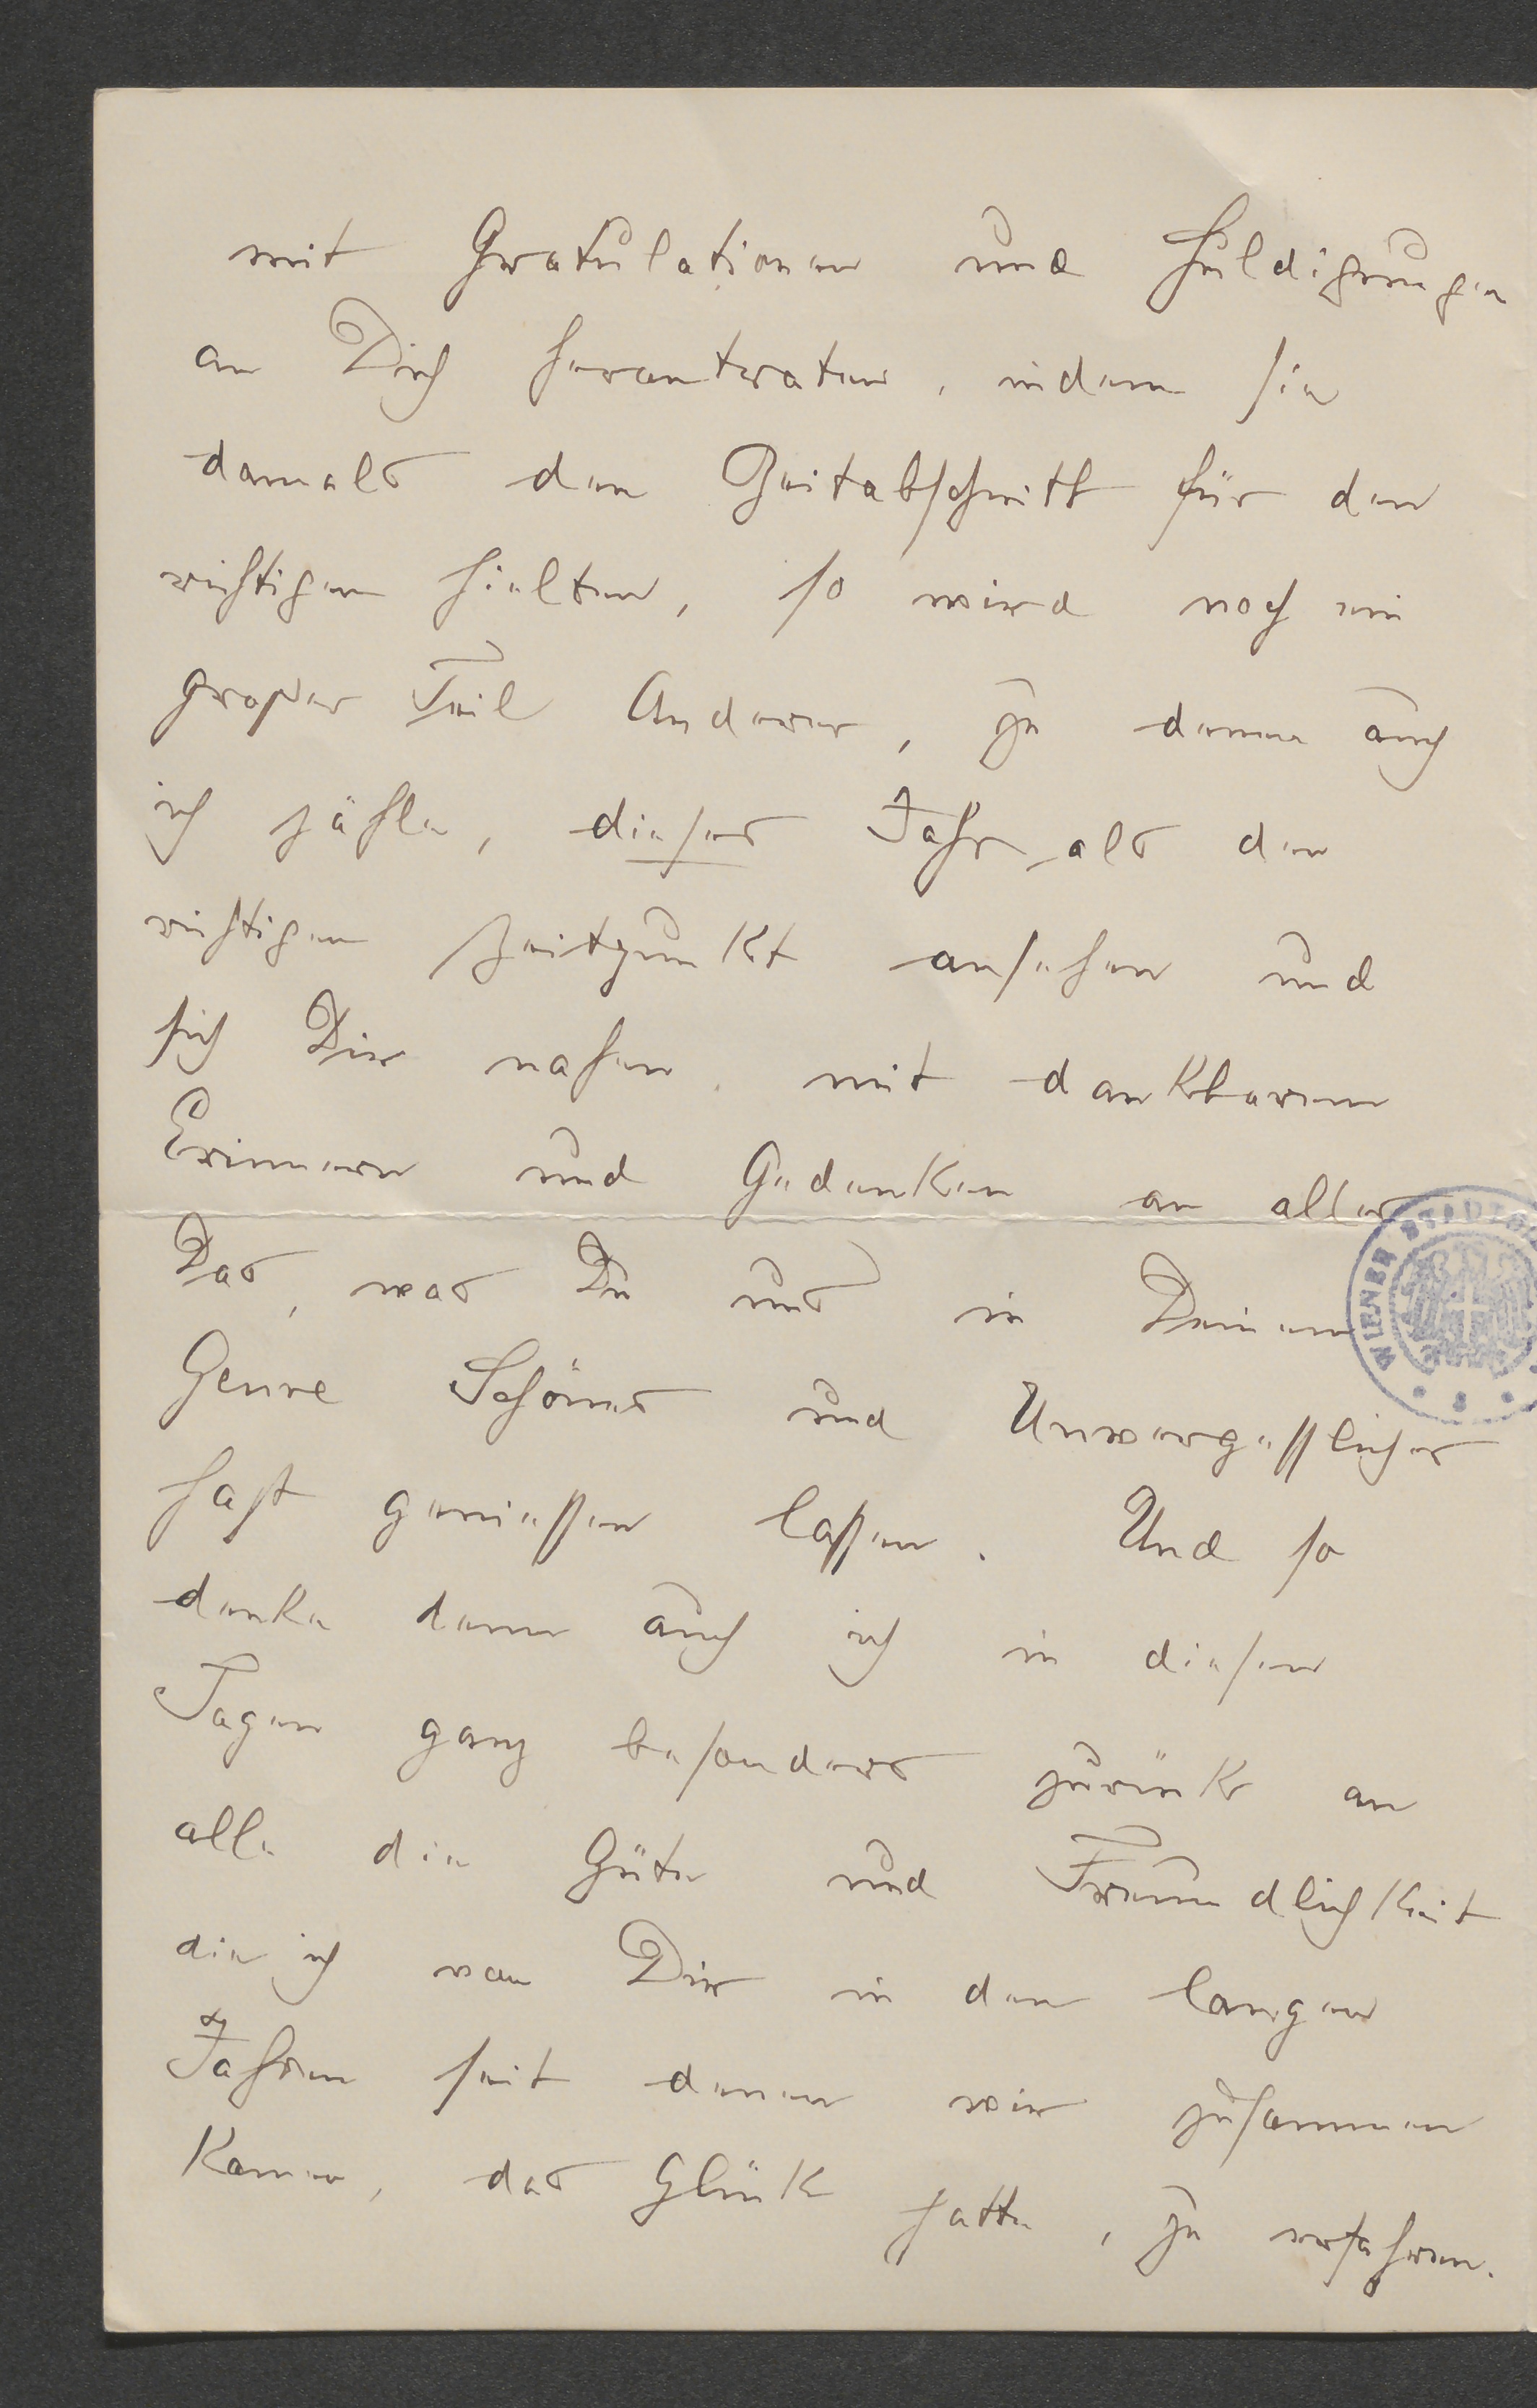 mit Gratulationen und Huldigungen
an Dich herantraten, indem sie
damals den Zeitabschnitt für den
richtigen hielten, so wird noch ein
großer Teil Anderer, zu denen auch
ich zähle, dieses Jahr als den
richtigen Zeitpunkt ansehen und
sich Dir nahen mit dankbarem
Erinnern und Gedenken an alles
Das, was Du uns in Deinem
Genre Schönes und Unvergessliches
hast geniessen lassen. Und so
denke denn auch ich in diesen
Tagen ganz besonders zurück an
alle die Güte und Freundlichkeit
die ich von Dir in den langen
Jahren seit denen wir zusammen
kamen, das Glück hatte, zu erfahren.
WIENER STADT